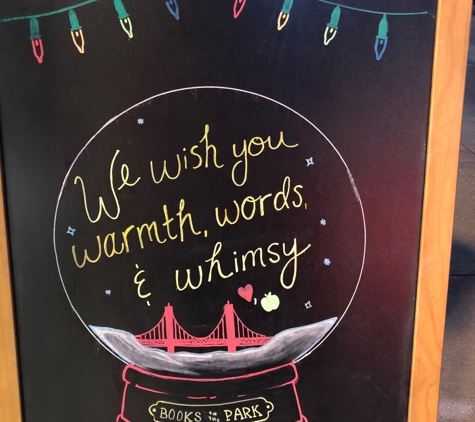 We wish you
warmth, words,
& whimsy
BOOKS IN THE PARK